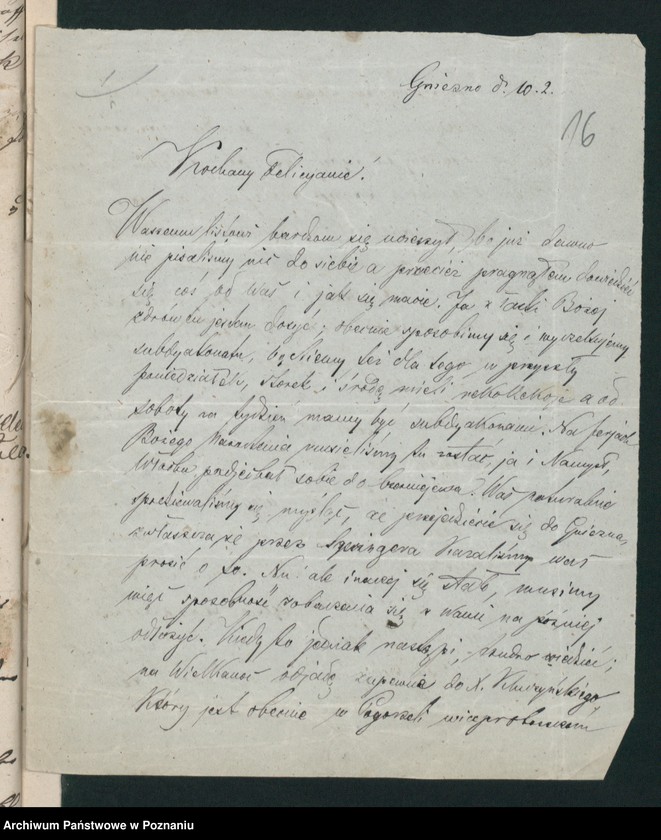 Gniezno d. 10.2.
16
Kochany Felicyanie!
Waszem listem bardzom się ucieszył, bo już dawno
nie pisaliśmy nic do siebie a przecież pragnąłem dowiedzieć
się coś od Was i jak się macie. Ja z łaski Bożej
zdrów jestem dosyć; obecnie sposobimy się i wyczekujemy
subdyakonatu, będziemy też dla tego w przyszły
poniedziałek, wtorek i środę mieli rekolekcje a od
soboty za tydzień mamy być subdyakonami. Na ferjach
Bożego Narodzenia musieliśmy tu zostać, ja i Namysł,
pojechał sobie do. Was naturalnie
spodziewaliśmy się, myśląc, że przejedziecie się do Gniezna,
zwłaszcza że przez Springera kazaliśmy was
prosić o to. No ale inaczej się stało, musimy
więc sposobność zobaczenia się z Wami na później
odłożyć. Kiedy to jednak nastąpi, trudno wiedzieć;
na Wielkanoc odjadę zapewnie do X.
który jest obecnie w Pogorzeli wiceproboszczem
Archiwum Państwowe w Poznaniu